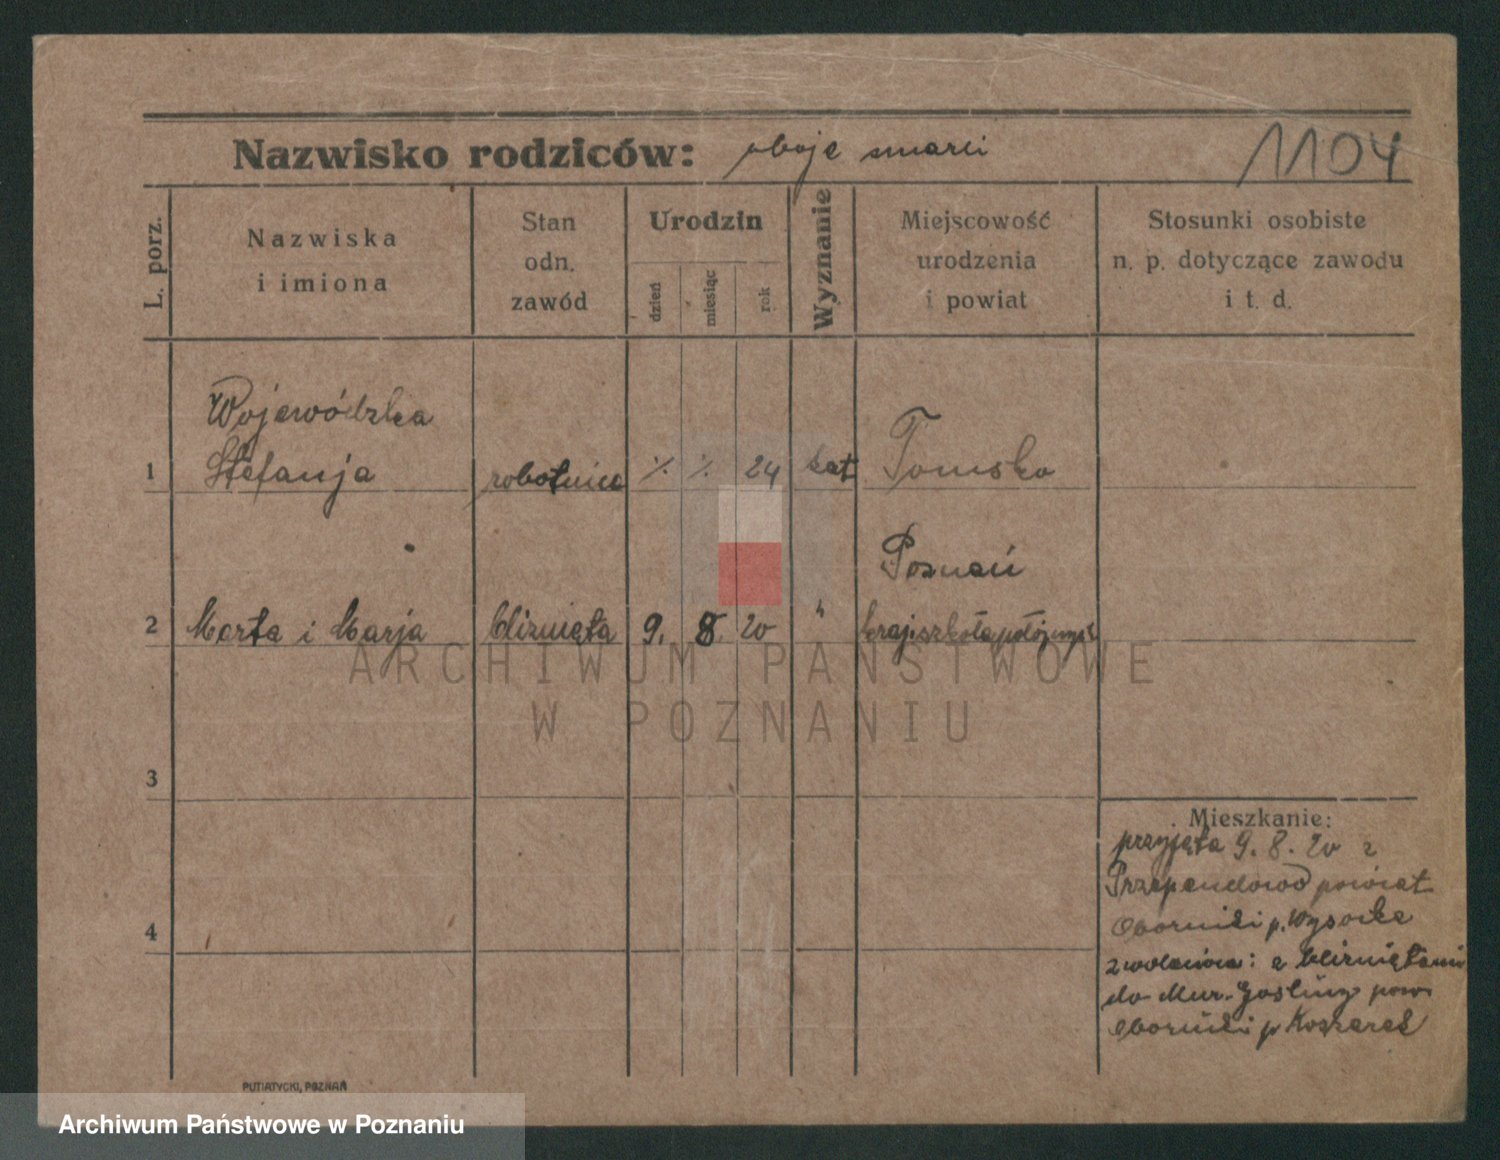 Nazwisko rodziców: oboje zmarli
1104
L. porz.
Nazwiska
i imiona
Stan
odn.
zawód
Urodzin
dzień
miesiąc
rok
Wyznanie
Miejscowość
urodzenia
i powiat
Stosunki osobiste
n. p. dotyczące zawodu
i t. d.
Wojewódzka
1 Stefanja robotnica % % 24 kat
Poznań
2 Marta i Marja bliznięta 9. 8. 20 " kraj. szkoła położnych
3
Mieszkanie:
przyjęta 9. 8. 20 z
powiat
4
Oborniki p. Wysocka
zwolniona: z bliźniętami
do Mur. Gośliny pow.
Oborniki p.
PUTIATYCKI, POZNAŃ
ARCHIWUM PAŃSTWOWE
W POZNANIU
Archiwum Państwowe w Poznaniu